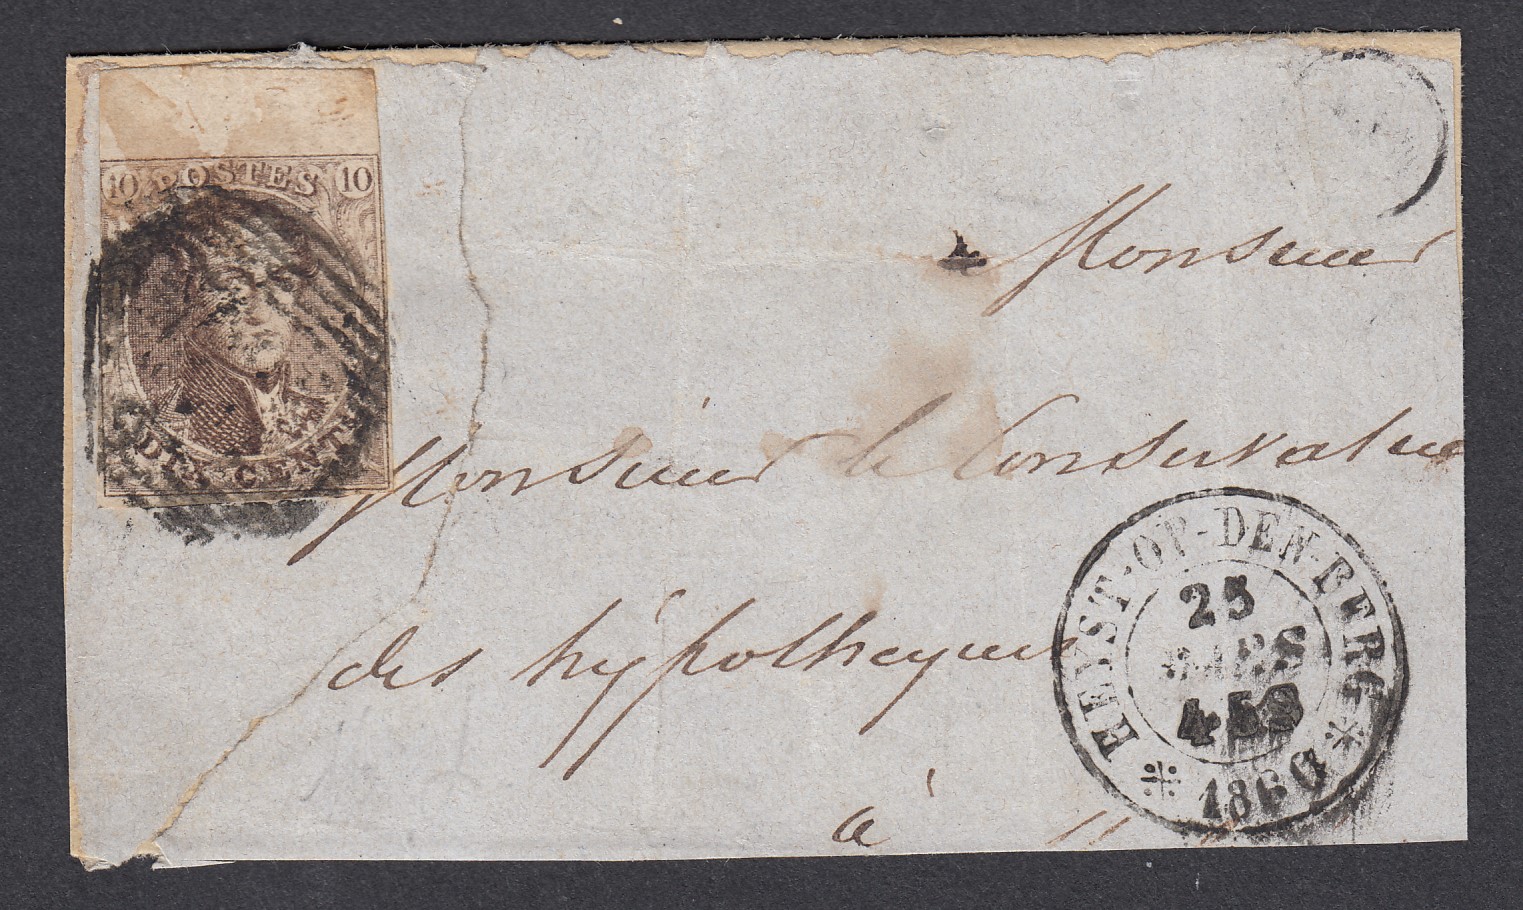 10 POSTES 10
DIX CENTS
Monsieur
Monsieur le Conservateur
des hypothèques
à
HEYST-OP-DEN-BERG
25
MARS
1860